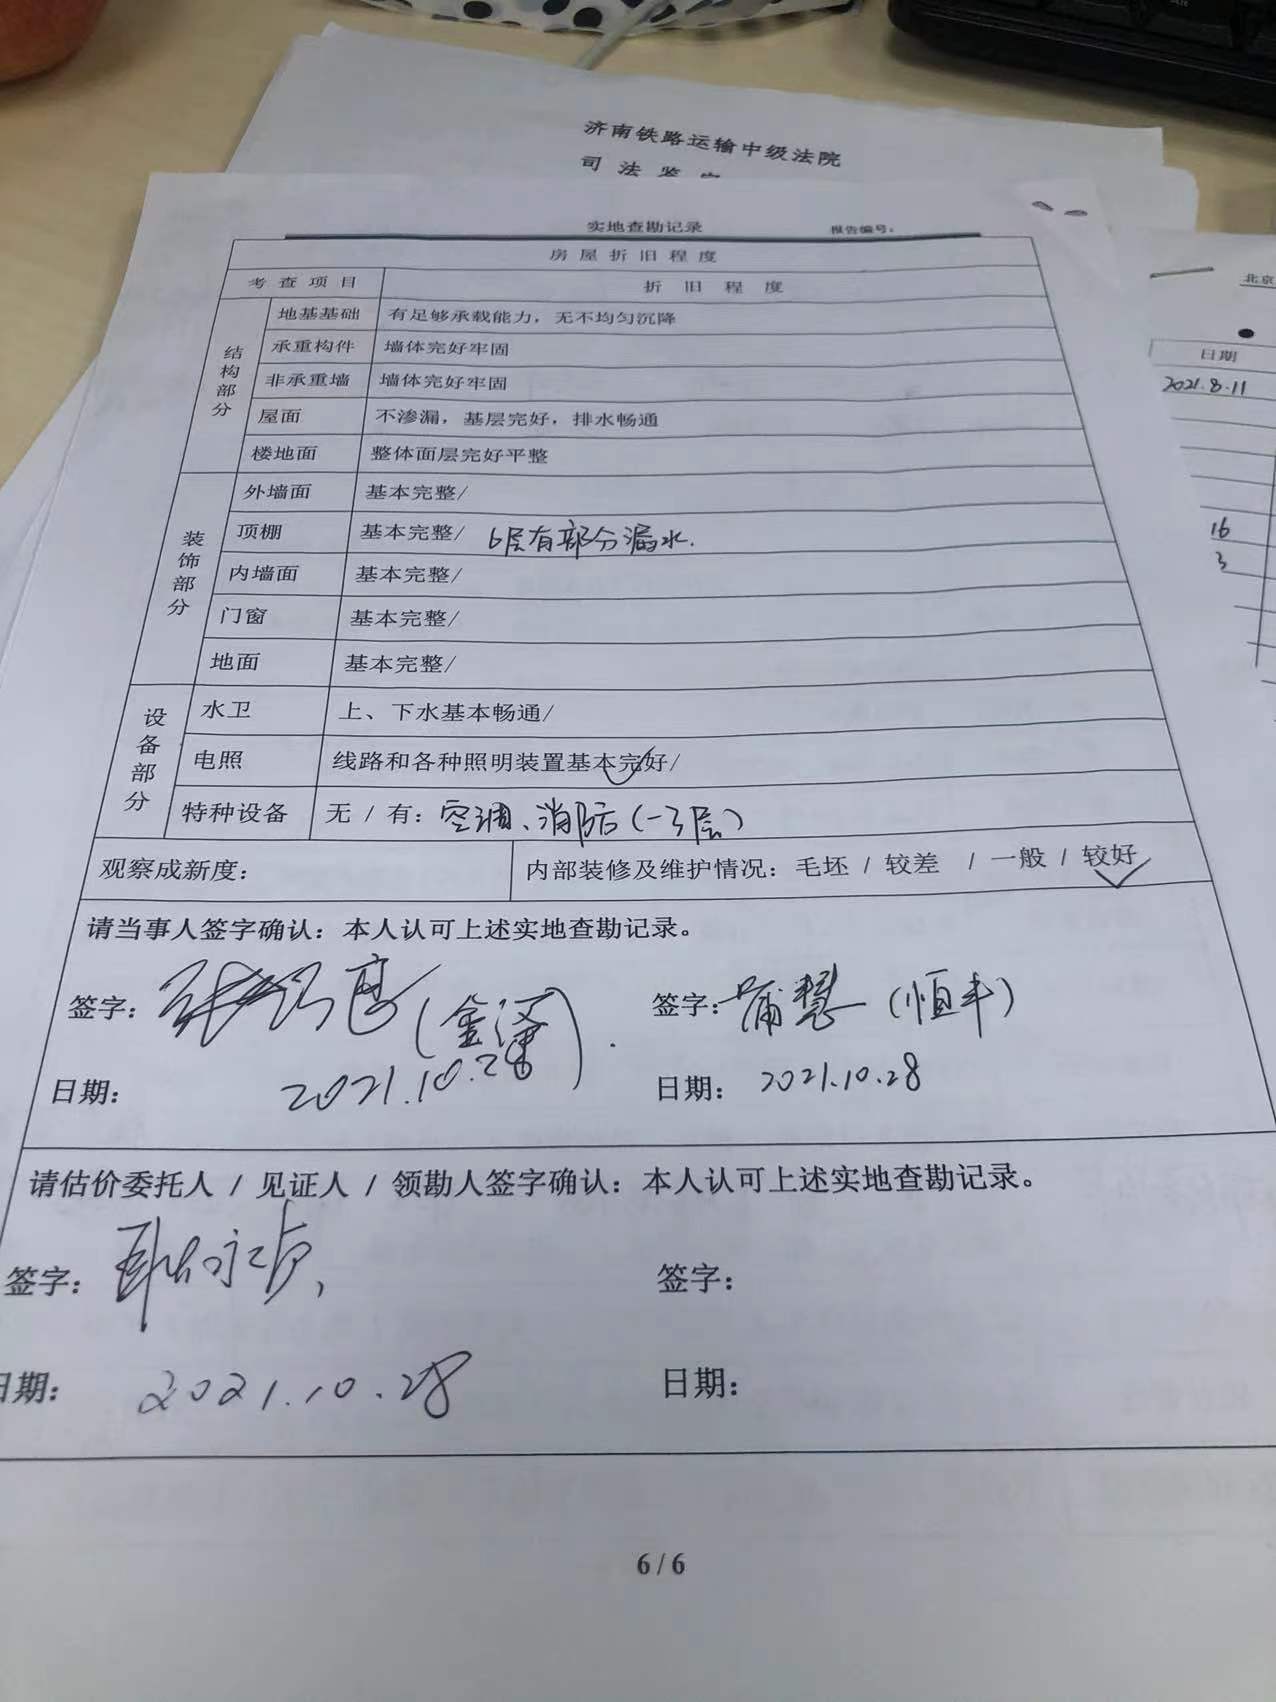 济南铁路运输中级法院
司法鉴定
实地查勘记录 报告编号：
房屋折旧程度
考查项目 折旧程度
结构部分
地基基础 有足够承载能力，无不均匀沉降
承重构件 墙体完好牢固
非承重墙 墙体完好牢固
屋面 不渗漏，基层完好，排水畅通
楼地面 整体面层完好平整
装饰部分
外墙面 基本完整/
顶棚 基本完整/ 6层有部分漏水.
内墙面 基本完整/
门窗 基本完整/
地面 基本完整/
设备部分
水卫 上、下水基本畅通/
电照 线路和各种照明装置基本完好/
特种设备 无 / 有：空调、消防(一3层)
观察成新度： 内部装修及维护情况：毛坯 / 较差 / 一般 / 较好
请当事人签字确认：本人认可上述实地查勘记录。
签字： (金泽) 签字：蒲慧 (恒丰)
日期： 2021.10.28 日期： 2021.10.28
请估价委托人 / 见证人 / 领勘人签字确认：本人认可上述实地查勘记录。
签字： 签字：
日期： 2021.10.28 日期：
6 / 6
北京
日期
2021.8.11
16
3